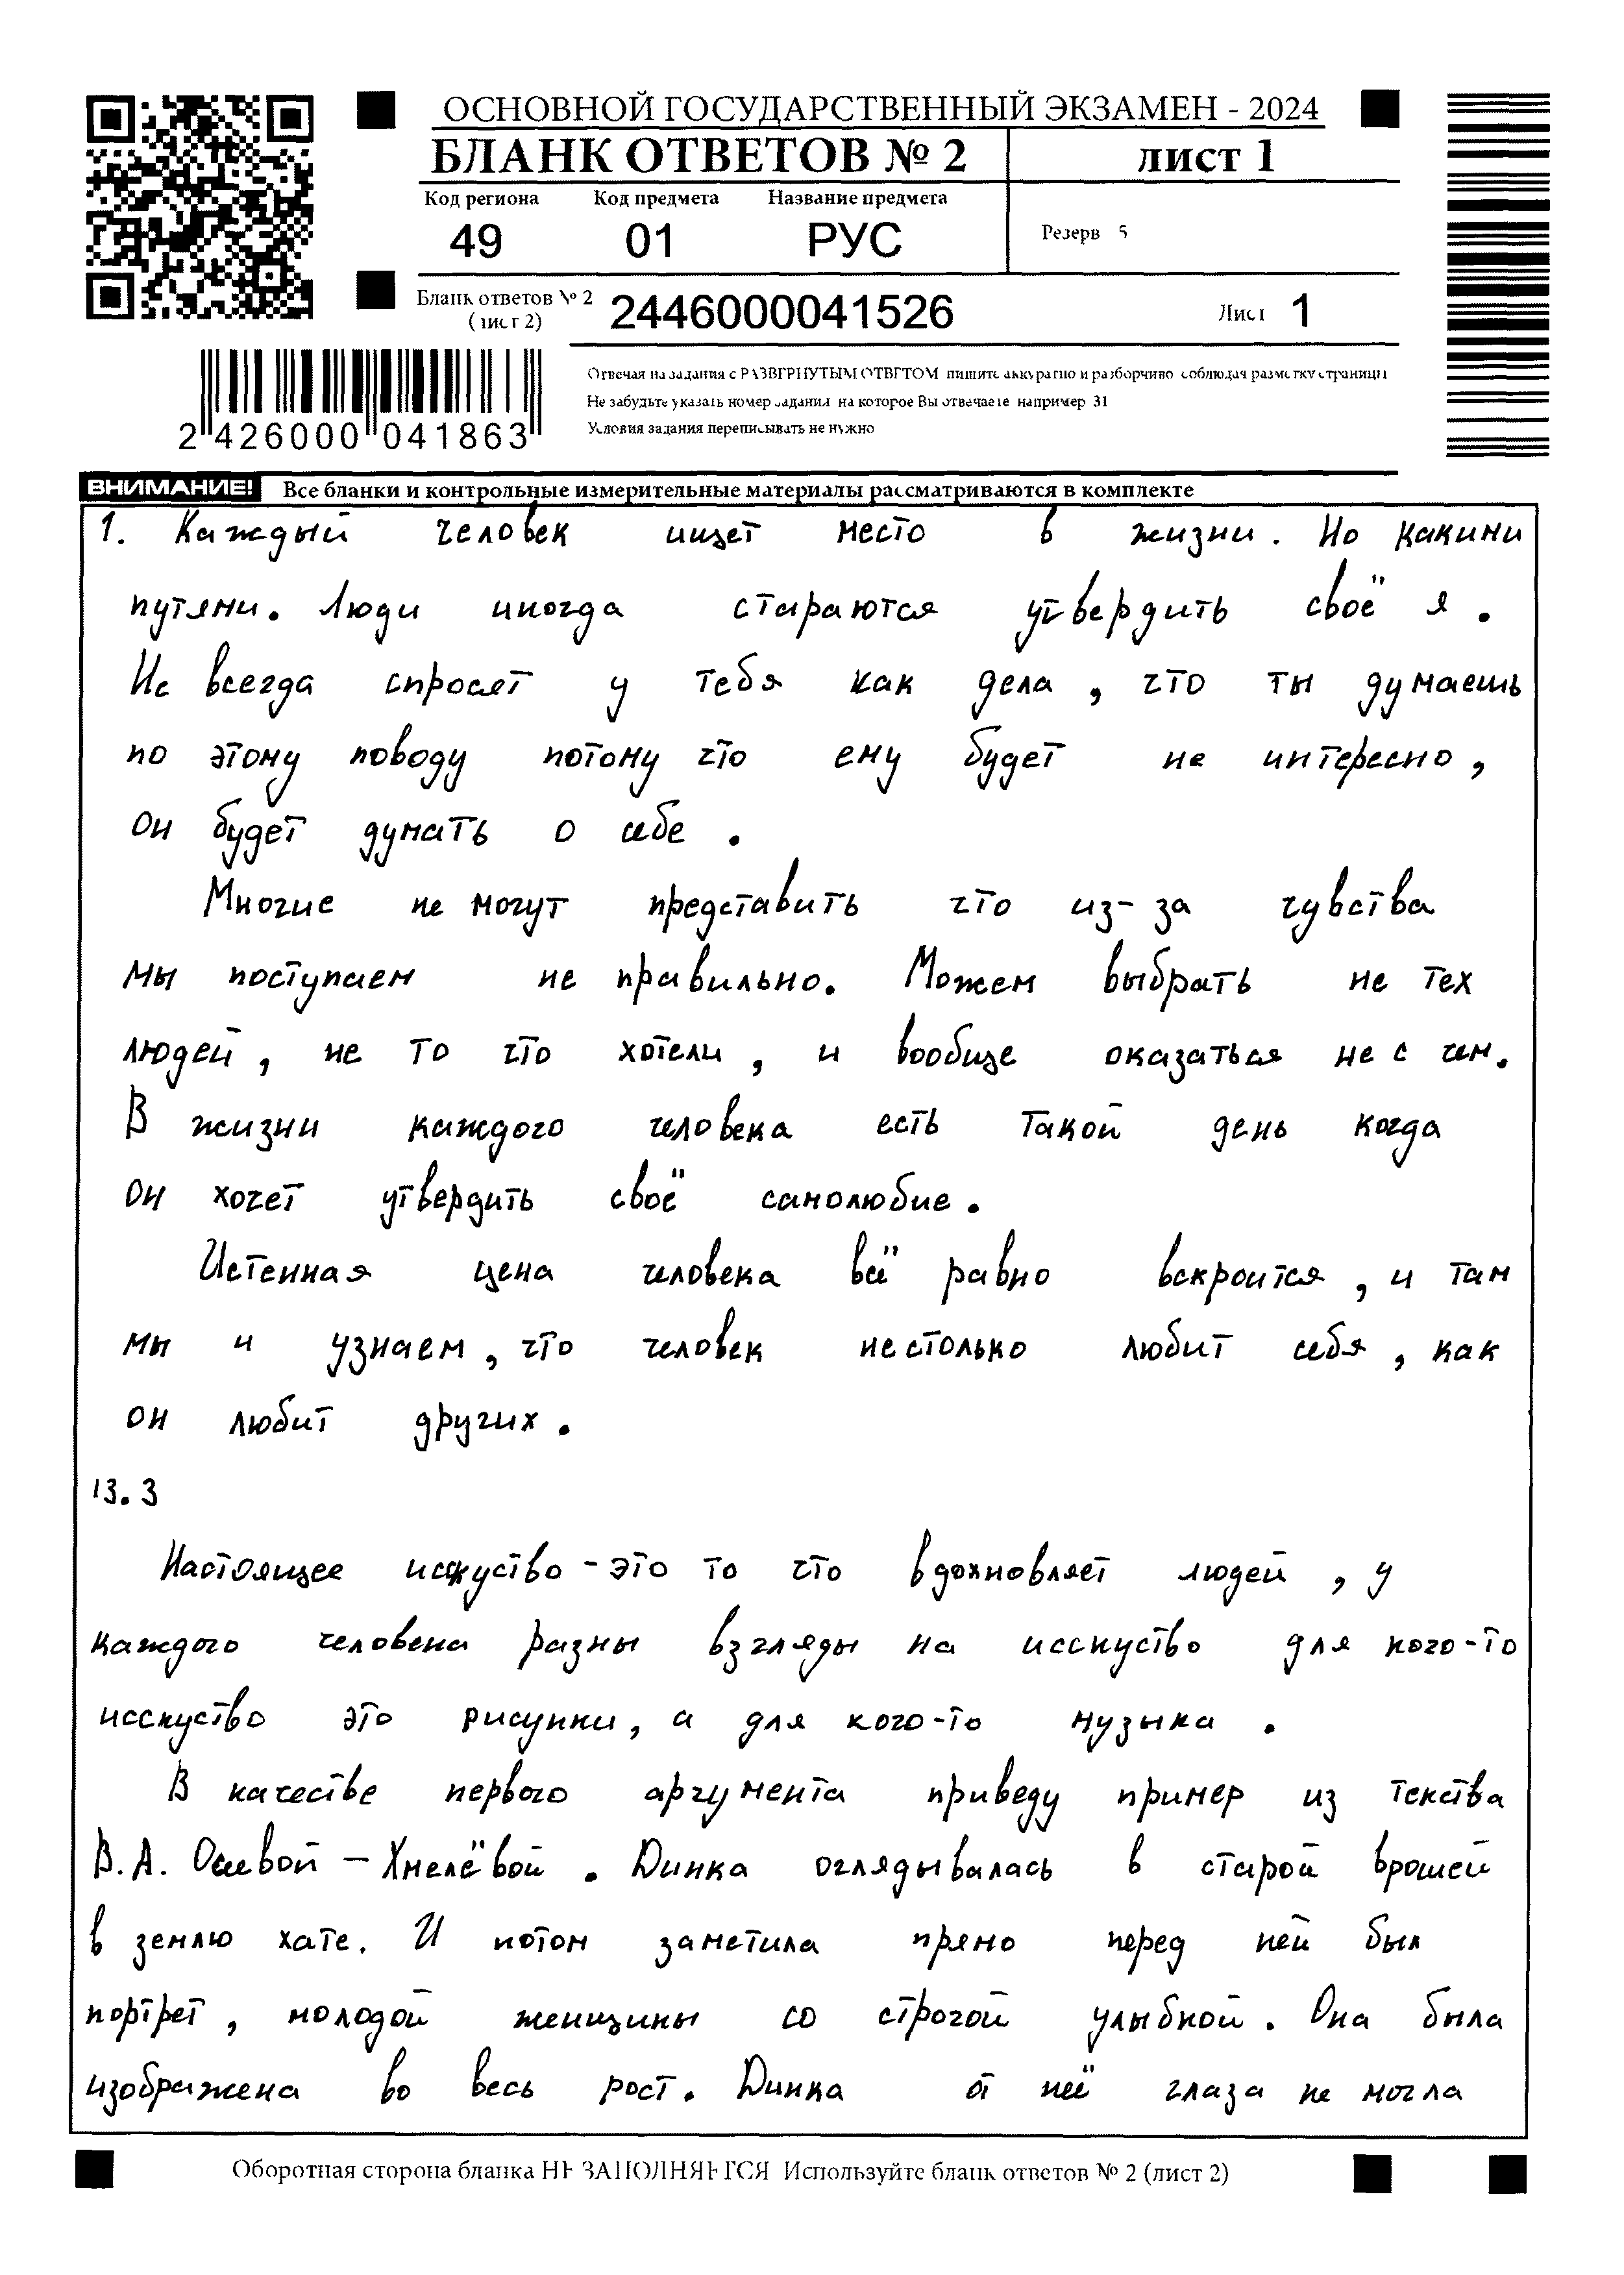 ОСНОВНОЙ ГОСУДАРСТВЕННЫЙ ЭКЗАМЕН - 2024
БЛАНК ОТВЕТОВ № 2 лист 1
Код региона Код предмета Название предмета
49 01 РУС Резерв 5
Бланк ответов № 2 (лист 2) 2446000041526 Лист 1
2 426000 041863
Отвечая на задания с РАЗВЕРНУТЫМ ОТВЕТОМ пишите аккуратно и разборчиво соблюдая разметку страницы
Не забудьте указать номер задания на которое Вы отвечаете например 31
Условия задания переписывать не нужно
ВНИМАНИЕ! Все бланки и контрольные измерительные материалы рассматриваются в комплекте
1. Каждый человек ищет место в жизни. Но какими
путями. Люди иногда стараются утвердить своё я.
Не всегда спросят у тебя как дела, что ты думаешь
по этому поводу потому что ему будет не интересно,
он будет думать о себе.
Многие не могут представить что из-за чувства
мы поступаем не правильно. Можем выбрать не тех
людей, не то что хотели, и вообще оказаться не с чем.
В жизни каждого человека есть такой день когда
он хочет утвердить своё самолюбие.
Истенная цена человека всё равно вскроится, и там
мы и узнаем, что человек нестолько любит себя, как
он любит других.
13.3
Настоящее исскуство - это то что вдохновляет людей, у
каждого человека разны взгляды на исскуство для кого-то
исскуство это рисунки, а для кого-то музыка.
В качестве первого аргумента приведу пример из текства
В.А. Осевой - Хмелёвой. Динка оглядывалась в старой врошей
в землю хате. И потом заметила прямо перед ней был
портрет, молодой женщины со строгой улыбкой. Она была
изображена во весь рост. Динка от неё глаза не могла
Оборотная сторона бланка НЕ ЗАПОЛНЯЕТСЯ Используйте бланк ответов № 2 (лист 2)